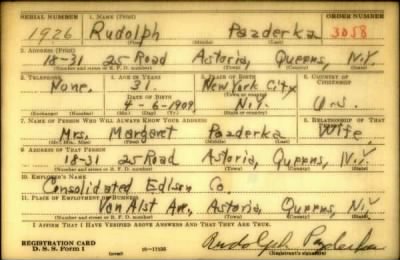 SERIAL NUMBER 1. NAME (Print) ORDER NUMBER
1926 Rudolph Pazderka 3058
(First) (Middle) (Last)
2. ADDRESS (Print)
18-31 25 Road Astoria, Queens, N.Y.
(Number and street or R. F. D. number) (Town) (County) (State)
3. TELEPHONE 4. AGE IN YEARS 5. PLACE OF BIRTH 6. COUNTRY OF CITIZENSHIP
None. 31. New York City
DATE OF BIRTH (Town or county)
4-6-1909 N.Y. U.S.
(Exchange) (No.) (Mo.) (Day) (Yr.) (State or country)
7. NAME OF PERSON WHO WILL ALWAYS KNOW YOUR ADDRESS 8. RELATIONSHIP OF THAT PERSON
Mrs. Margaret Pazderka Wife
(Mr., Mrs., Miss) (First) (Middle) (Last)
9. ADDRESS OF THAT PERSON
18-31 25 Road Astoria, Queens, N.Y.
(Number and street or R. F. D. number) (Town) (County) (State)
10. EMPLOYER'S NAME
Consolidated Edison Co.
11. PLACE OF EMPLOYMENT OR BUSINESS
Van Alst Ave, Astoria, Queens, N.Y.
(Number and street or R. F. D. number) (Town) (County) (State)
I AFFIRM THAT I HAVE VERIFIED ABOVE ANSWERS AND THAT THEY ARE TRUE.
REGISTRATION CARD
D. S. S. Form 1 (over) 16-17105 Rudolph Pazderka
(Registrant's signature)